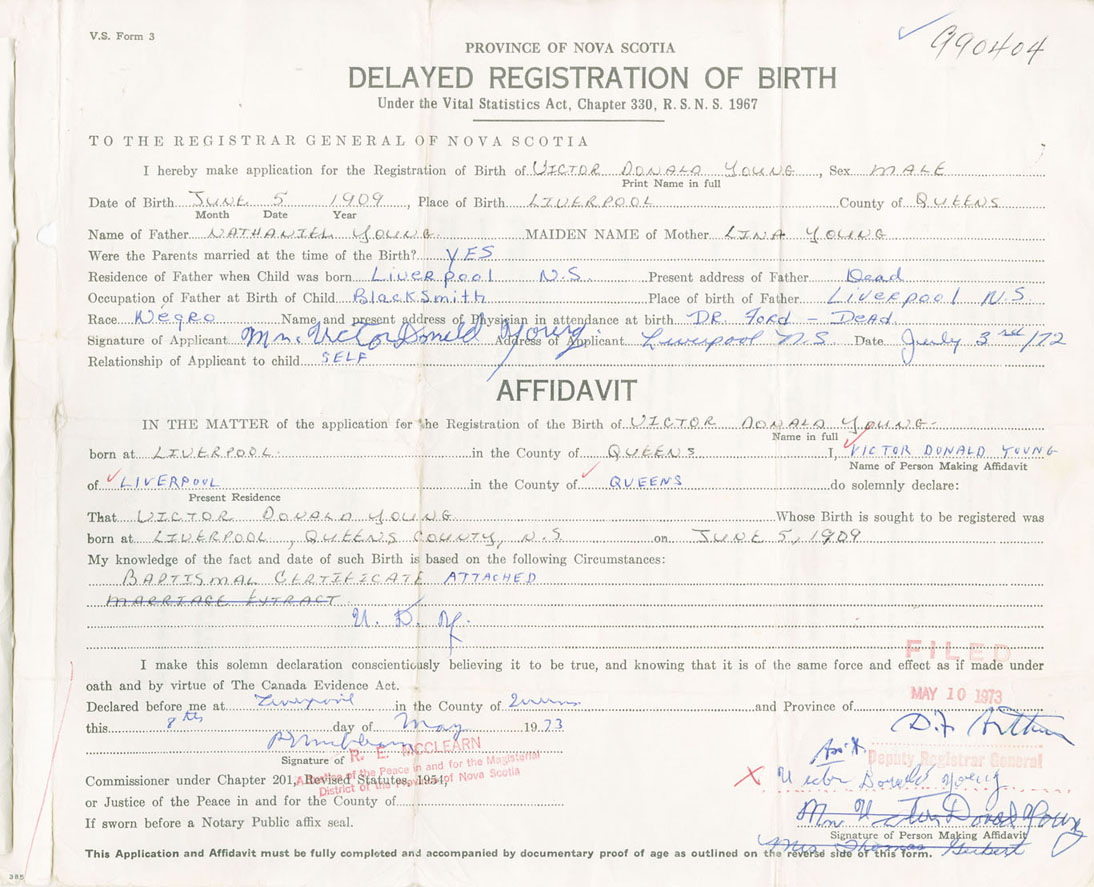 V.S. Form 3
990404
PROVINCE OF NOVA SCOTIA
DELAYED REGISTRATION OF BIRTH
Under the Vital Statistics Act, Chapter 330, R.S.N.S. 1967
TO THE REGISTRAR GENERAL OF NOVA SCOTIA
I hereby make application for the Registration of Birth of VICTOR DONALD YOUNG, Sex MALE
Print Name in full
Date of Birth JUNE 5 1909, Place of Birth LIVERPOOL County of QUEENS
Month Date Year
Name of Father NATHANIEL YOUNG MAIDEN NAME of Mother LINA YOUNG
Were the Parents married at the time of the Birth? YES
Residence of Father when Child was born Liverpool N.S. Present address of Father Dead
Occupation of Father at Birth of Child Blacksmith Place of birth of Father Liverpool N.S
Race Negro Name and present address of Physician in attendance at birth DR. Ford – Dead.
Signature of Applicant Mr. Victor Donald Young. Address of Applicant Liverpool N.S. Date July 3rd/72
Relationship of Applicant to child SELF
AFFIDAVIT
IN THE MATTER of the application for the Registration of the Birth of VICTOR DONALD YOUNG.
Name in full
born at LIVERPOOL. in the County of QUEENS I, VICTOR DONALD YOUNG
Name of Person Making Affidavit
of LIVERPOOL in the County of QUEENS do solemnly declare:
Present Residence
That VICTOR DONALD YOUNG Whose Birth is sought to be registered was
born at LIVERPOOL, QUEENS COUNTY, N.S on JUNE 5, 1909
My knowledge of the fact and date of such Birth is based on the following Circumstances:
BAPTISMAL CERTIFICATE ATTACHED
MARRIAGE EXTRACT
V. D. Y.
I make this solemn declaration conscientiously believing it to be true, and knowing that it is of the same force and effect as if made under
oath and by virtue of The Canada Evidence Act.
FILED
MAY 10 1973
Declared before me at Liverpool in the County of Queens and Province of
this 8th day of May 1973
Signature of R. E. MCCLEARN
A Justice of the Peace in and for the Magisterial
District of the Province of Nova Scotia
Deputy Registrar General
Commissioner under Chapter 201, Revised Statutes, 1954,
Victor Donald Young
or Justice of the Peace in and for the County of
Mr Victor Donald Young
Signature of Person Making Affidavit
If sworn before a Notary Public affix seal.
Mrs Thomas
This Application and Affidavit must be fully completed and accompanied by documentary proof of age as outlined on the reverse side of this form.
385